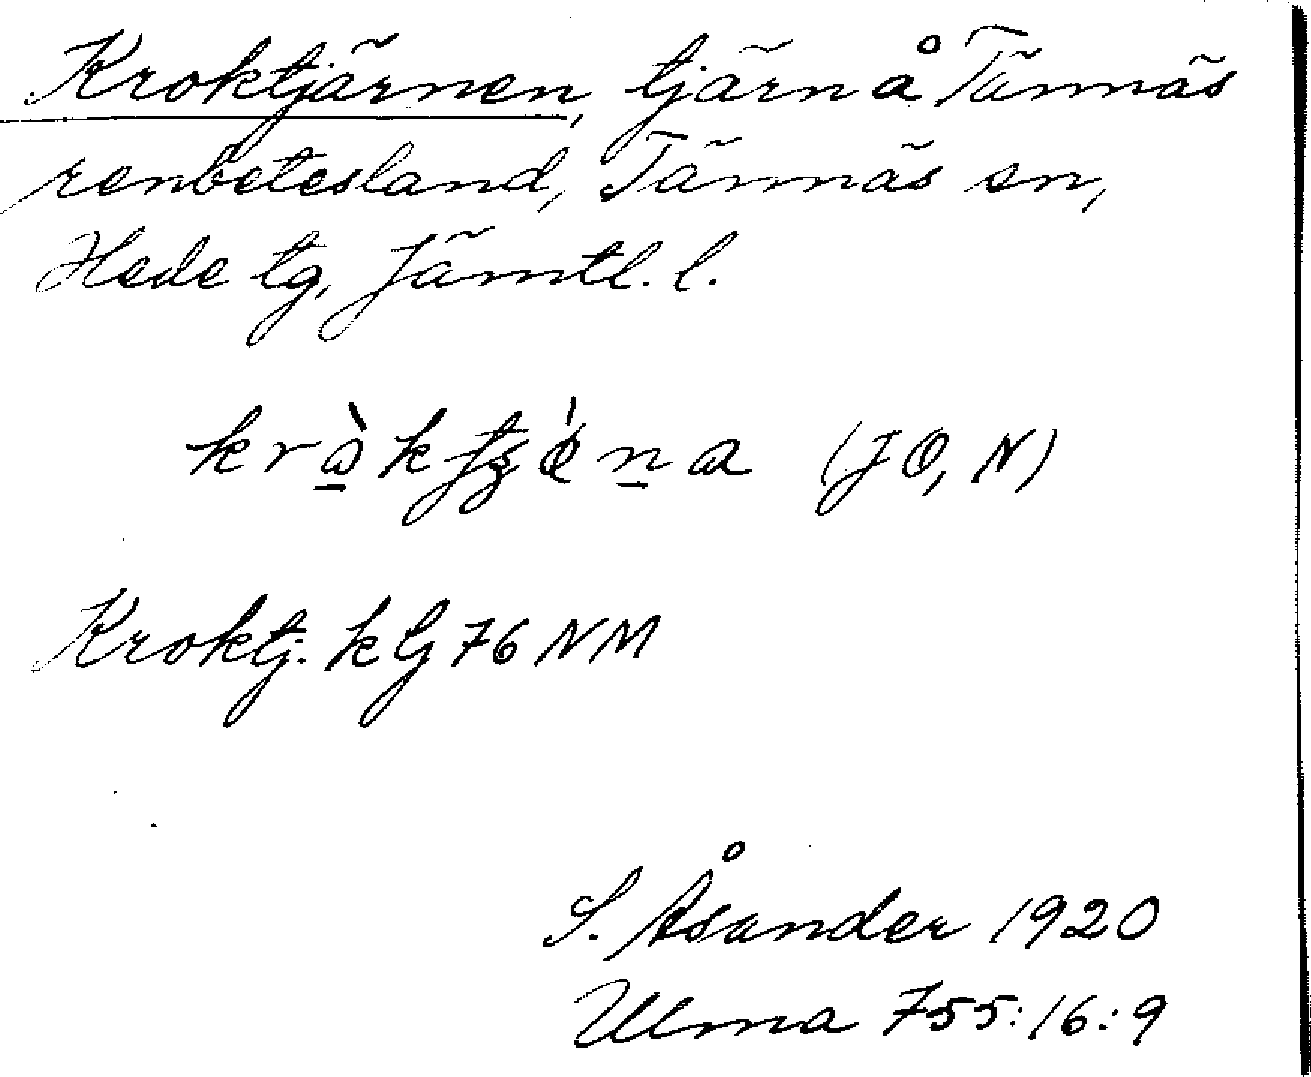 Kroktjärnen, tjärn å Tännäs
renbetesland, Tännäs sn,
Hede tg, Jämtl. l.
(JO, N)
Kroktj. kbl 76 NM
S. Åsander 1920
Ulma 755:16:9